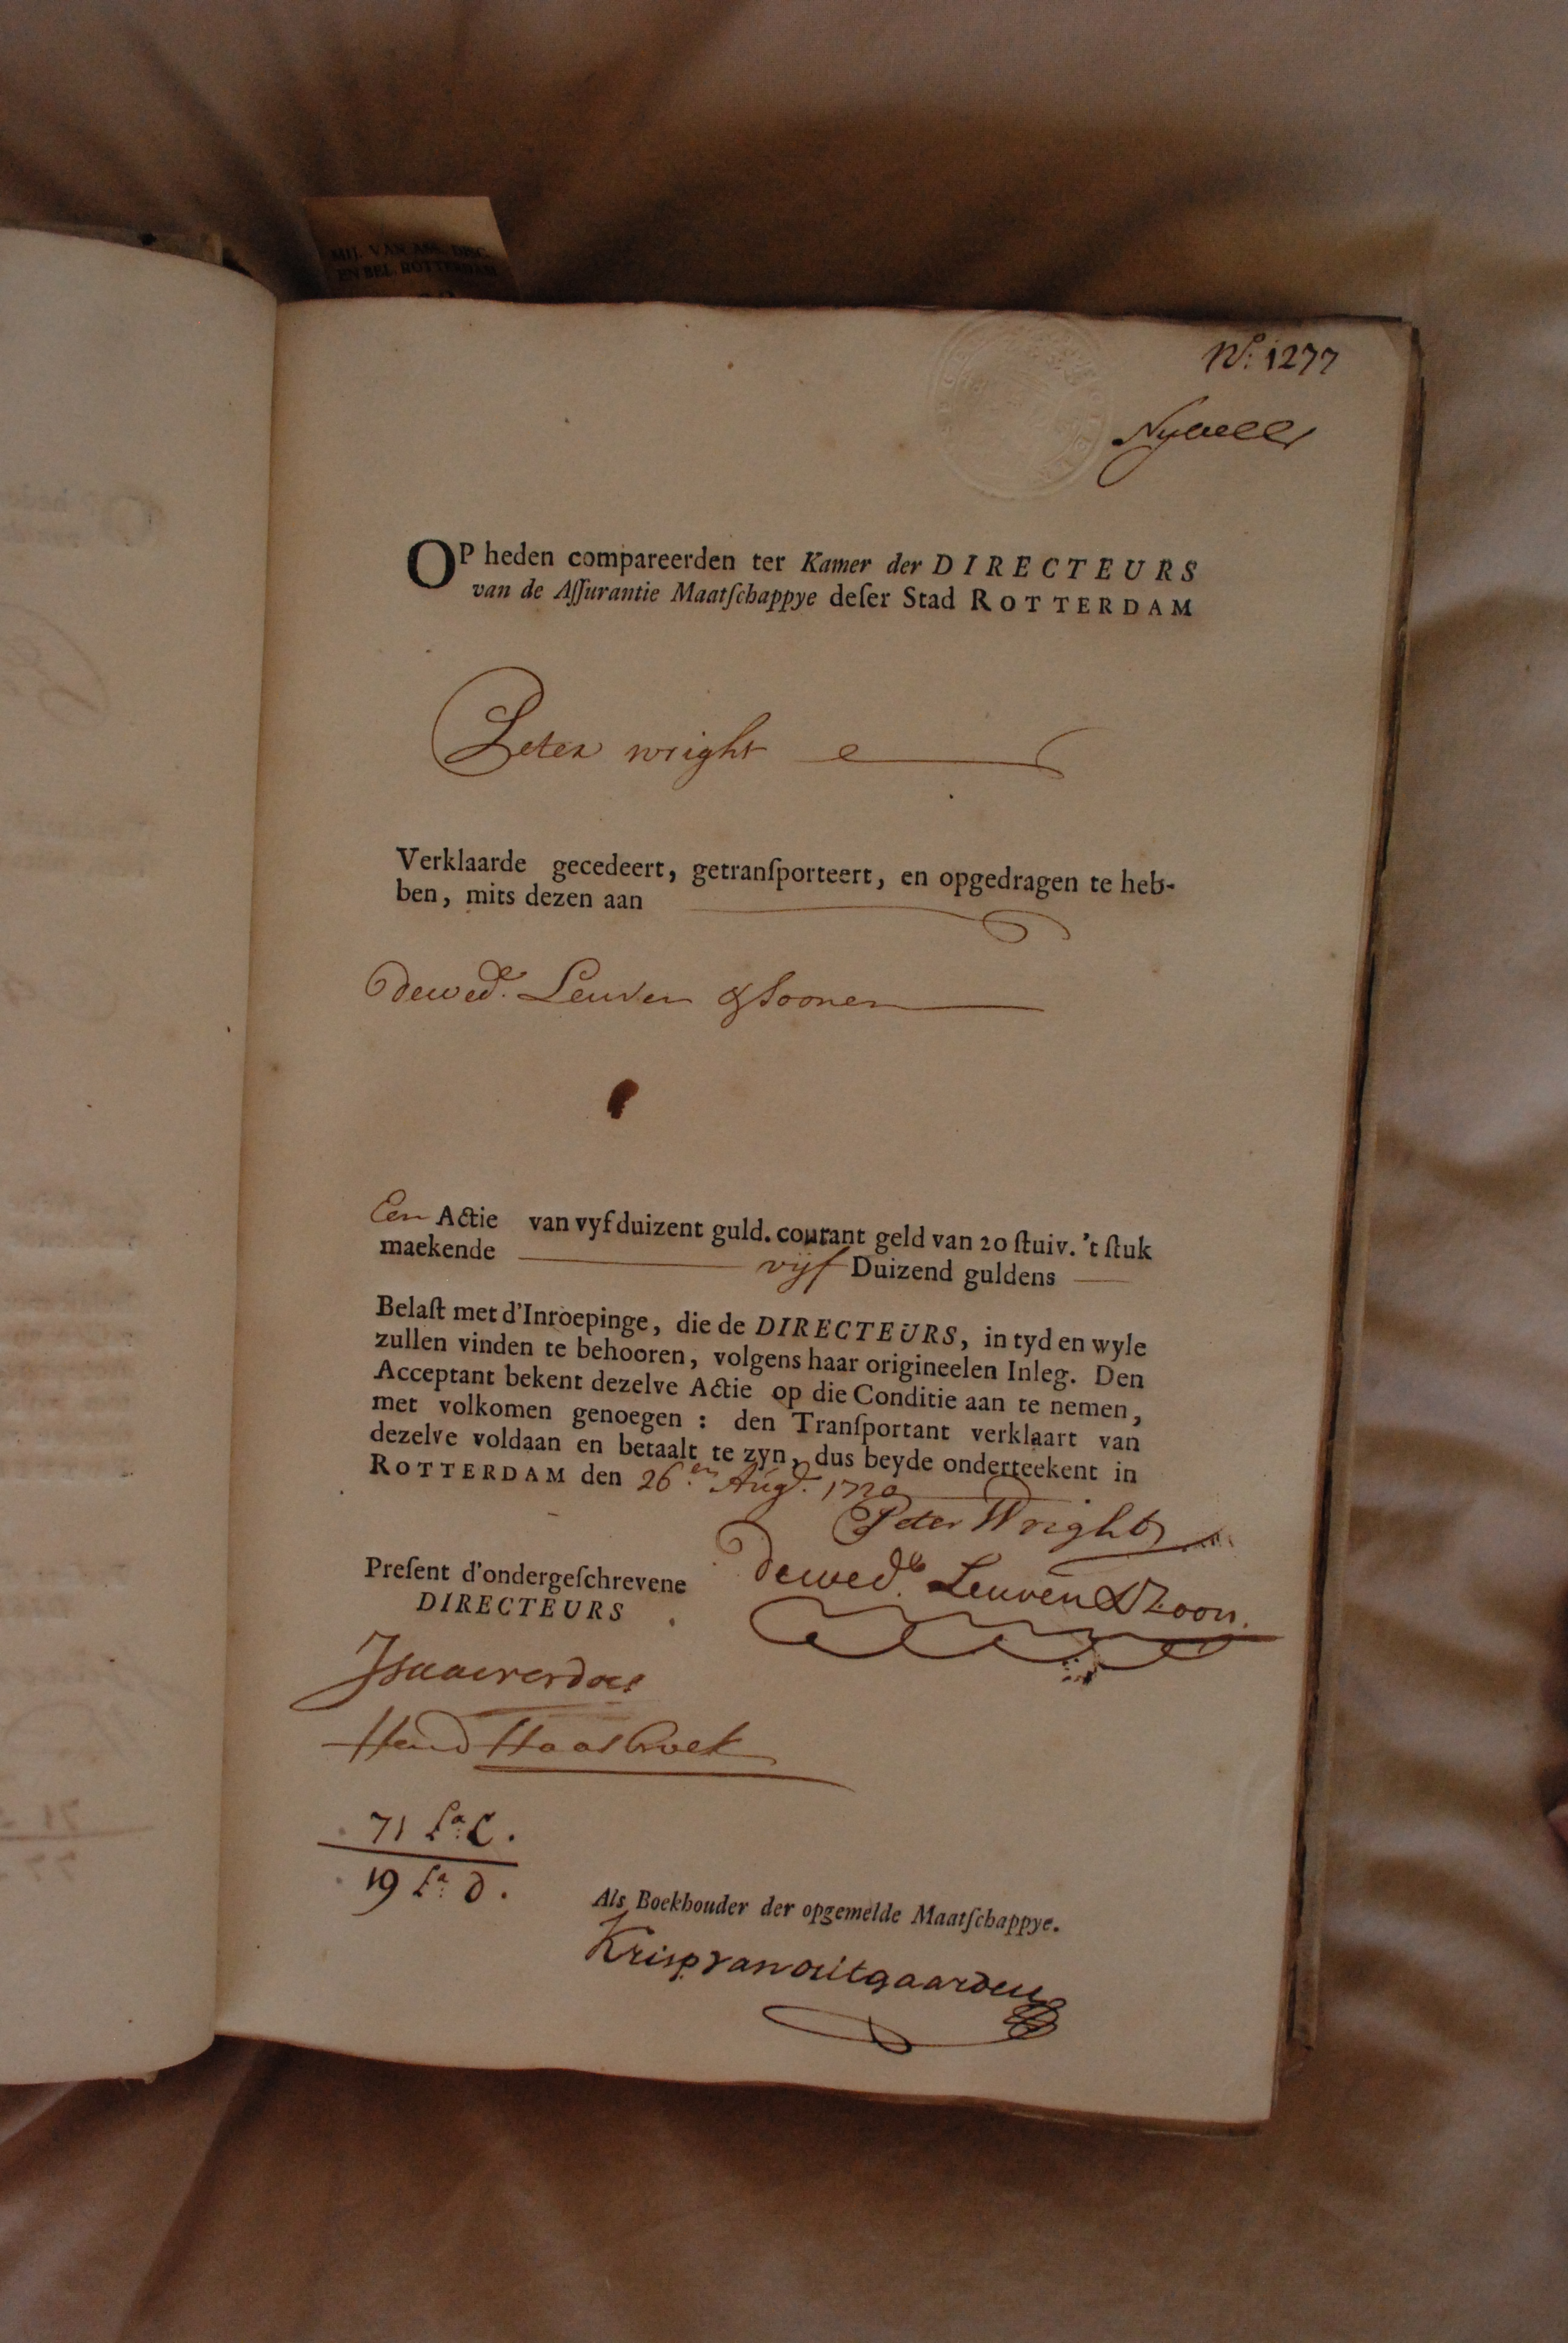 MIJ. VAN ASS. DISC.
EN BEL. ROTTERDAM
Nº: 1277
OP heden compareerden ter Kamer der DIRECTEURS
van de Aſſurantie Maatſchappye deſer Stad ROTTERDAM
Peter wright
Verklaarde gecedeert, getranſporteert, en opgedragen te heb-
ben, mits dezen aan
de wed.e Leuven & Soonen
Een Actie van vyf duizent guld. courant geld van 20 ſtuiv. 't ſtuk
maekende vijf Duizend guldens
Belaſt met d'Inroepinge, die de DIRECTEURS, in tyd en wyle
zullen vinden te behooren, volgens haar origineelen Inleg. Den
Acceptant bekent dezelve Actie op die Conditie aan te nemen,
met volkomen genoegen: den Tranſportant verklaart van
dezelve voldaan en betaalt te zyn, dus beyde onderteekent in
ROTTERDAM den 26.en Aug.t 1720
Peter Wright
de wed.e Leuven & Zoon.
Preſent d'ondergeſchrevene
DIRECTEURS
Hend Haasbroek
71 L.a C.
19 L.a D.
Als Boekhouder der opgemelde Maatſchappye.
Krisp van outgaarden